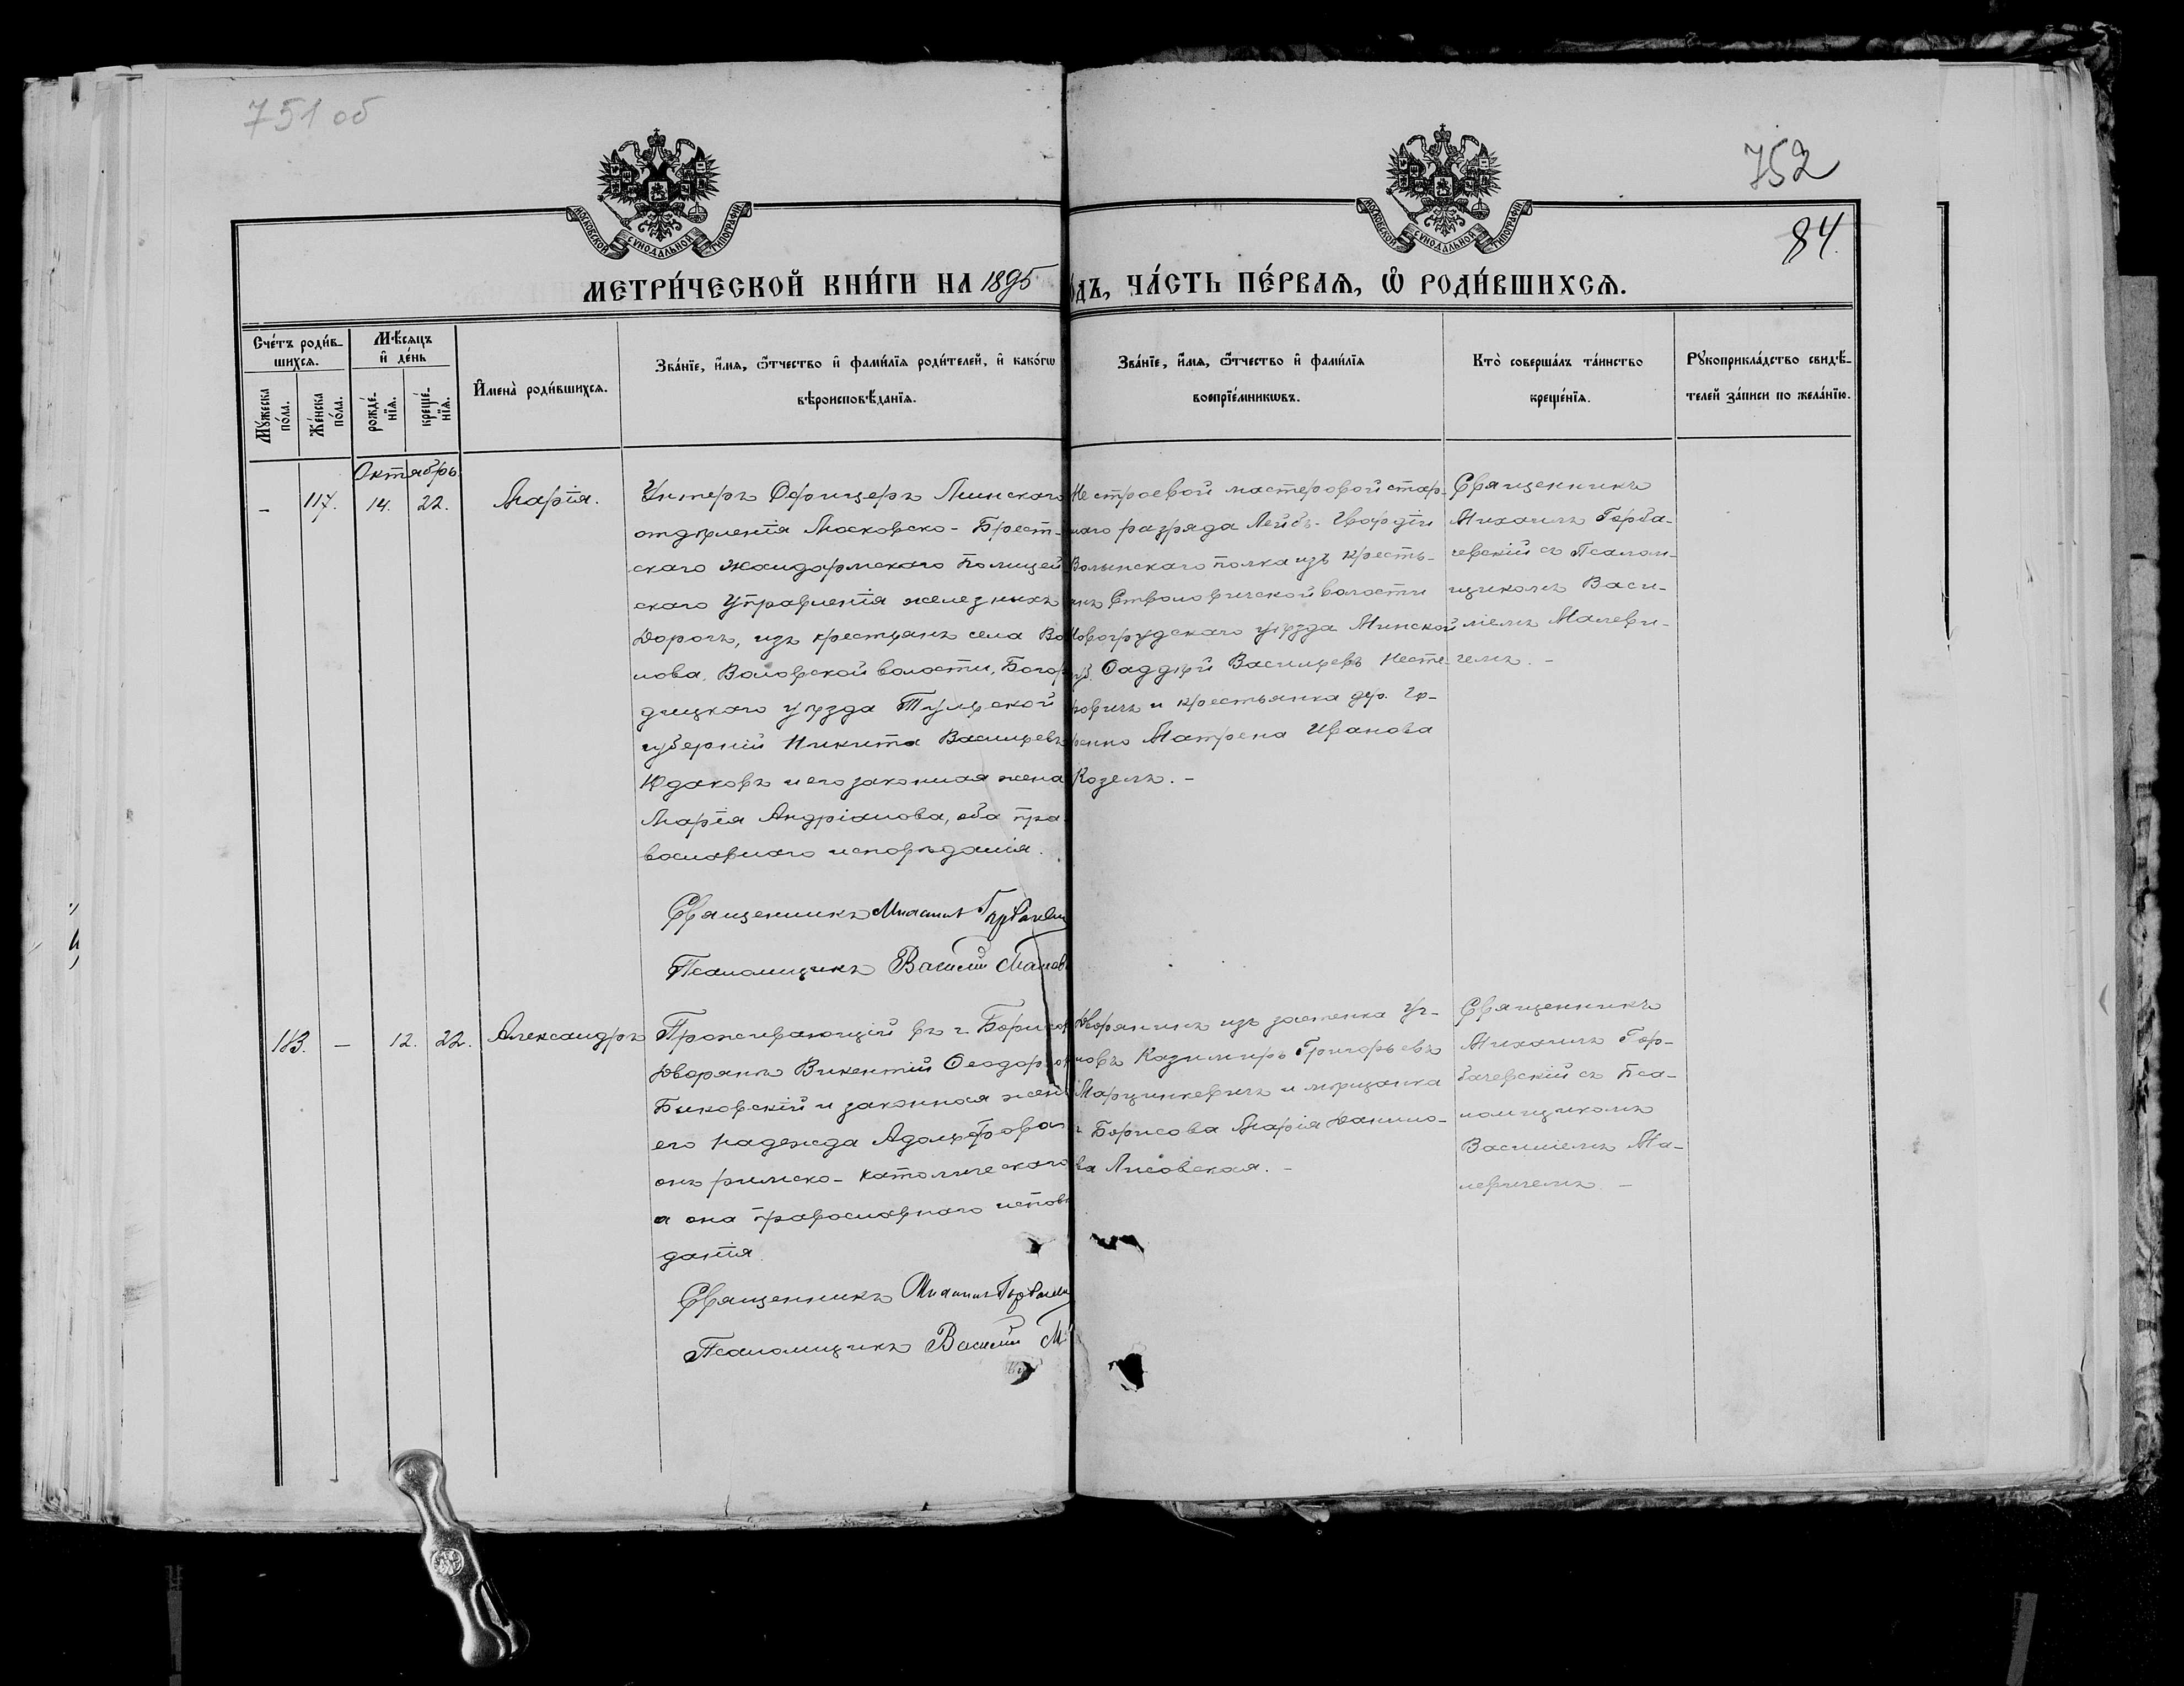 751 об
752
84.
МОСКОВСКОЙ СѴНОДАЛЬНОЙ ТИПОГРАФІИ
МОСКОВСКОЙ СѴНОДАЛЬНОЙ ТИПОГРАФІИ
МЕТРИ́ЧЕСКОЙ КНИ́ГИ НА 1895
ОДЪ, ЧА́СТЬ ПЕ́РВАѦ, Ѡ РОДИ́ВШИХСѦ.
Сче́тъ роди́в-
шихсѧ.
Мꙋ́жеска по́ла.
Же́нска по́ла.
Мѣ́сѧцъ
и де́нь
рожде́-нїѧ.
креще́-нїѧ.
И҆мена̀ роди́вшихсѧ.
Зва́нїе, и҆́мѧ, ѻ҆́тчество и҆ фами́лїѧ роди́телей, и҆ како́гѡ
вѣроисповѣ́данїѧ.
Зва́нїе, и҆́мѧ, ѻ҆́тчество и҆ фами́лїѧ
воспрїе́мникѡвъ.
Кто̀ соверша́лъ та́инство
креще́нїѧ.
Рꙋкоприкла́дство свидѣ́-
телей за́писи по жела́нїю.
Октябрь
– 117. 14. 22. Марія.
Унтеръ Офицеръ Минскаго
отдѣленія Московско-Брест-
скаго Жандармскаго Полицей
скаго Управленія железныхъ
дорогъ, изъ крестьянъ села
Воловской волости, Богор
дицкаго уѣзда Тульской
губерніи Никита Васильевъ
Юдаковъ и его законная жена
Марія Андріанова, оба пра-
вославнаго исповѣданія.
Священникъ Михаилъ Горбачевск
Псаломщикъ Василій Малев
Не строевой мастеровой стар-
шаго разряда Лейбъ-Гвардіи
Волынскаго полка изъ кресть-
янъ Стволовичской волости
Новогрудскаго уѣзда Минской
губ. Фаддѣй Васильевъ Несте-
ровичъ и крестьянка дер.
Матрена Иванова
Козелъ. –
Священникъ
Михаилъ Горба-
чевскій съ Псалом-
щикомъ Васи-
ліемъ Малеви-
чемъ. –
183. – 12. 22. Александръ
Проживающій въ г. Борисов
дворянъ Викентій Ѳеодоров
Быковскій и законная жена
его Надежда Адольфова
онъ римско-католическаго
а она православнаго исповѣ
данія.
Священникъ Михаилъ Горбачевск
Псаломщикъ Василій М
Дворянинъ изъ застенка Уг-
Казимиръ Григорьевъ
Марцинкевичъ и мѣщанка
г. Борисова Марія Данило-
ва Лисовская. –
Священникъ
Михаилъ Гор-
бачевскій съ Пса-
ломщикомъ
Василіемъ Ма-
левичемъ. –